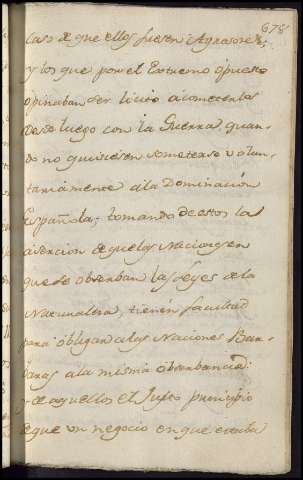 678
Caso de que ellos fuesen Agresores,
y los que por el Extremo opuesto
opinaban ser licito acometerlos
desde luego con la Guerra, quan-
do no quisiesen someterse volun-
tariamente á la Dominación
Española; tomando de estos la
asercion de que las Naciones en
que se observan las Leyes de la
Naturaleza, tienen facultad
para obligar a las Naciones Bar-
baras a la misma observancia:
y de aquellos el Justo principio
de que un negocio en que estaba